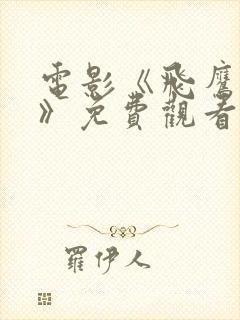 電影《飛鷹
》免費觀看
羅伊人